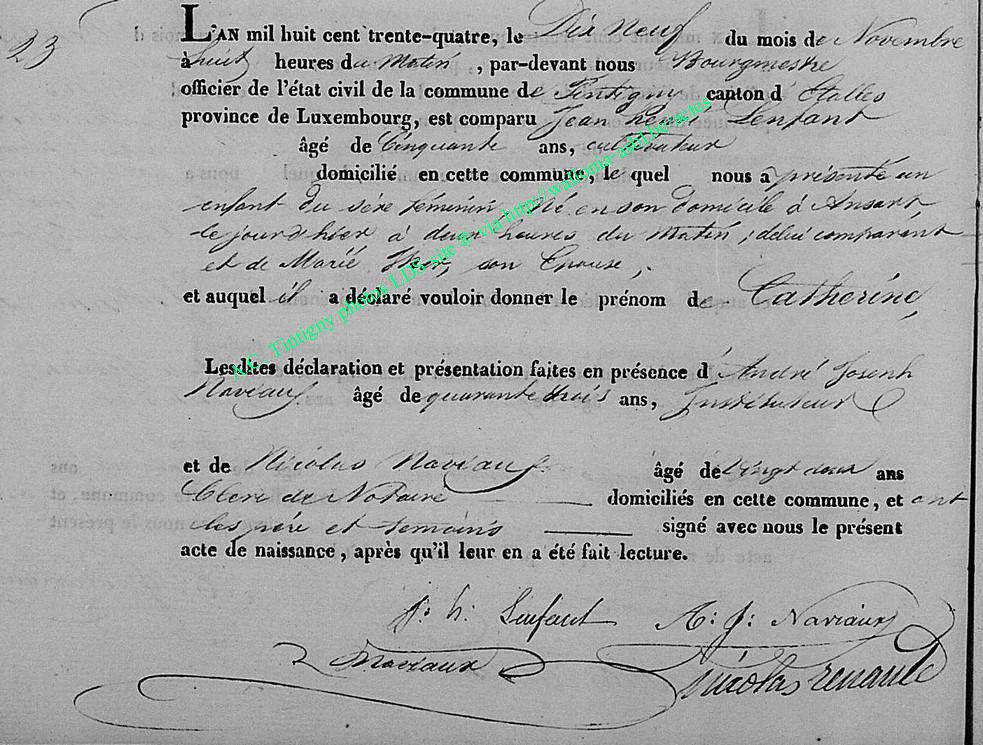 23
L'AN mil huit cent trente-quatre, le Dix Neuf du mois de Novembre
à huit heures du Matin, par-devant nous Bourgmestre
officier de l'état civil de la commune de Tintigny canton d'Etalles
province de Luxembourg, est comparu Jean henri Lenfant
âgé de Cinquante ans, cultivateur
domicilié en cette commune, le quel nous a présenté un
enfant du sexe féminin, Né en son Domicile à Ansart,
le jour d'hier à deux heures du Matin, de lui comparant
et de Marie, son Epouse,
et auquel il a déclaré vouloir donner le prénom de Catherine,
Lesdites déclaration et présentation faites en présence d'André Joseph
Naviaux âgé de quarante trois ans, Instituteur
et de Nicolas Naviaux âgé de vingt deux ans
Clerc de Notaire domiciliés en cette commune, et ont
les père et temoins signé avec nous le présent
acte de naissance, après qu'il leur en a été fait lecture.
j. h. Lenfant A: J: Naviaux
Naviaux
nicolas renauld
A.C. Tintigny photos LDS site @ via http://wallonia-asbl.be/actes